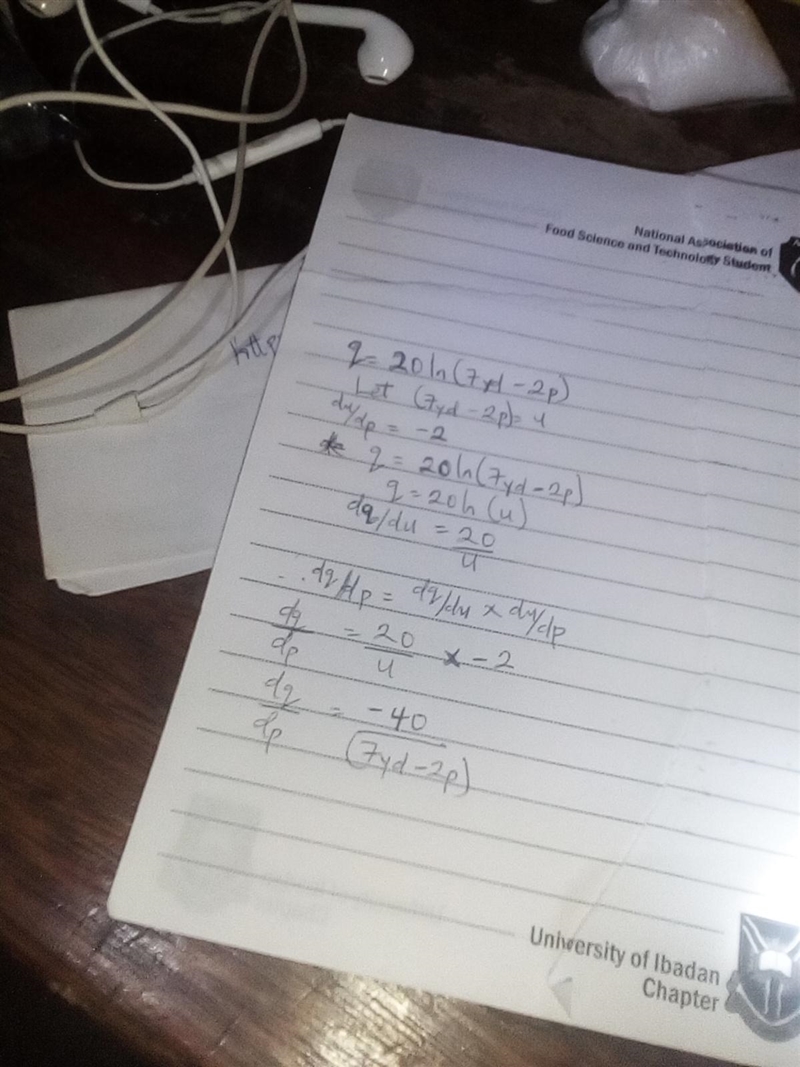 National Association of
Food Science and Technology Student
http
q = 20 ln (7yd - 2p)
Let (7yd - 2p) = u
du/dp = -2
q = 20 ln (7yd - 2p)
q = 20 ln (u)
dq/du = 20/u
∴ dq/dp = dq/du × du/dp
dq/dp = 20/u × -2
dq/dp = -40/(7yd - 2p)
University of Ibadan
Chapter